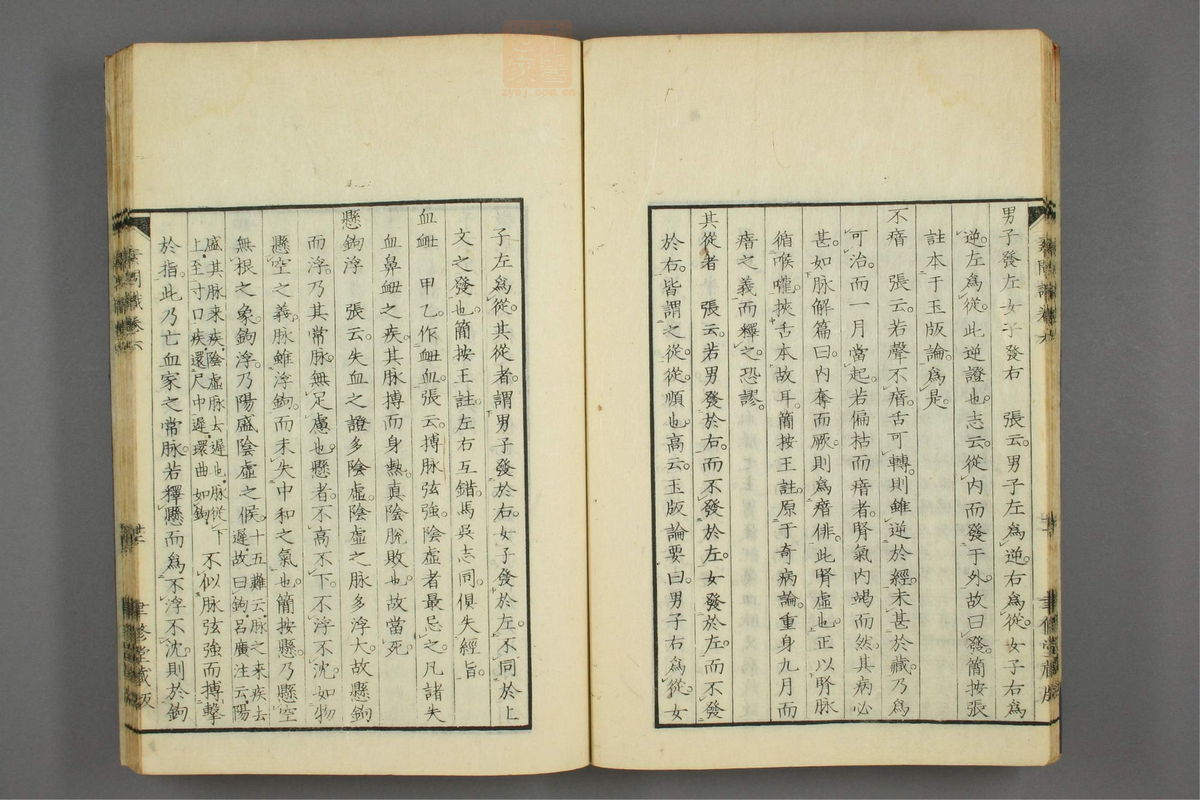 男子發左女子發右　張云男子左為逆右為從女子右為
逆左為從此逆證也志云從內而發于外故曰發簡按張
註本于玉版論為是
不瘖　張云若聲不瘖舌可轉則雖逆於經未甚於藏乃為
可治而一月當起若偏枯而瘖者腎氣內竭而然其病必
甚如脈解篇曰內奪而厥則為瘖俳此腎虛也正以腎脉
循喉嚨挾舌本故耳簡按王註原于奇病論重身九月而
瘖之義而釋之恐謬
其從者　張云若男發於右而不發於左女發於左而不發
於右皆謂之從從順也高云玉版論要曰男子右為從女
子左為從其從者謂男子發於右女子發於左不同於上
文之發也簡按王註左右互錯馬吳志同俱失經旨
血衄　甲乙作衄血張云搏脈弦強陰虛者最忌之凡諸失
血鼻衄之疾其脈搏而身熱真陰脫敗也故當死
懸鉤浮　張云失血之證多陰虛陰虛之脈多浮大故懸鉤
而浮乃其常脈無足慮也懸者不高不下不浮不沈如物
懸空之義脈雖浮鉤而未失中和之氣也簡按懸乃懸空
無根之象鉤浮乃陽盛陰虛之候十五難云脉之來疾去
遲故曰鉤呂廣注云陽
盛其脉來疾陰虛脉去遲也脉從下
上至寸口疾還尺中遲環曲如鉤
不似脉弦強而搏擊
於指此乃亡血家之常脉若釋懸而為不浮不沈則於鉤
聿修堂藏版